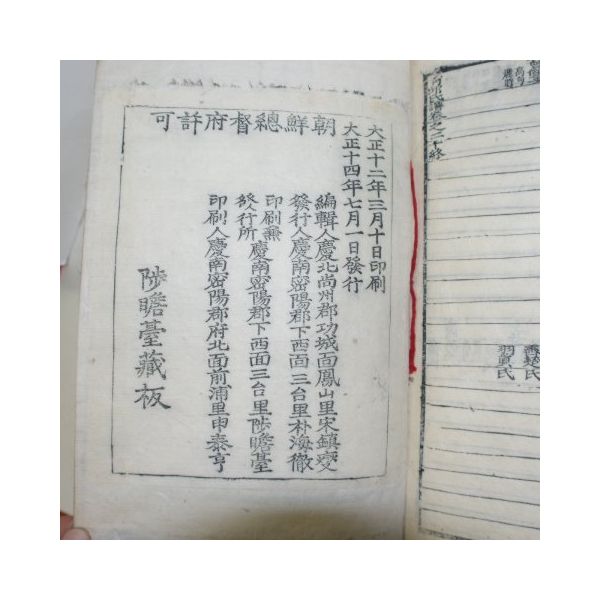 朝鮮總督府許可
大正十二年三月十日印刷
大正十四年七月一日發行
編輯人慶北尙州郡功城面鳳山里宋鎭燮
發行人慶南密陽郡下西面三台里朴海徹
印刷兼發行所慶南密陽郡下西面三台里陟瞻臺
印刷人慶南密陽郡府北面前浦里申泰亨
陟瞻臺藏板